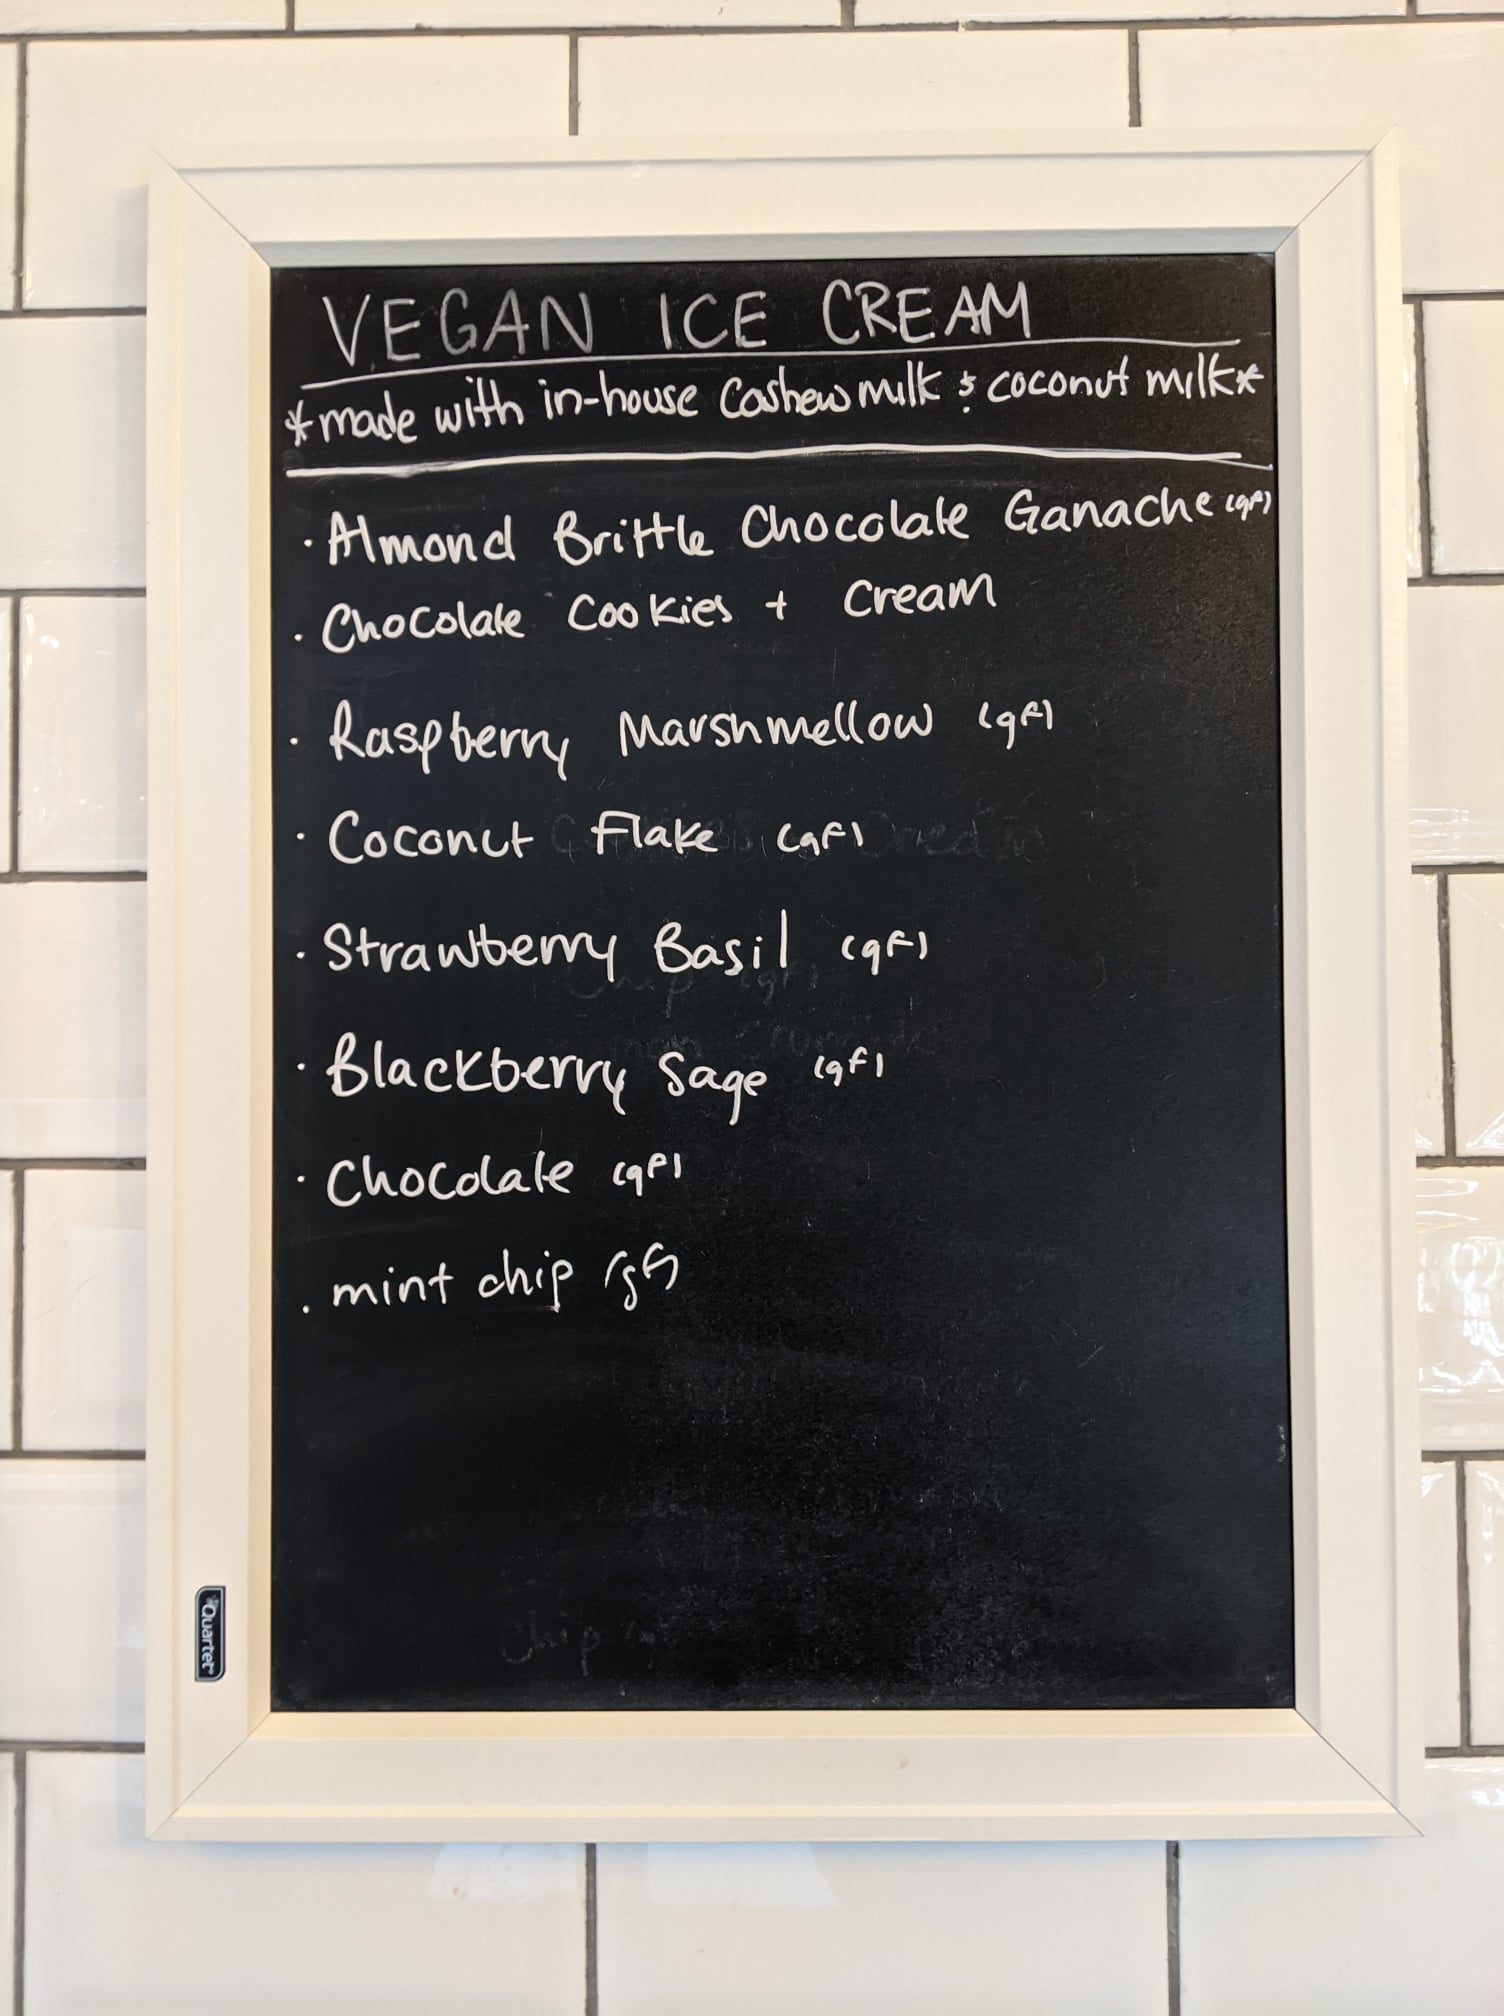 VEGAN ICE CREAM
*made with in-house Cashew milk & coconut milk*
· Almond Brittle Chocolate Ganache (gf)
· Chocolate Cookies + Cream
· Raspberry Marshmellow (gf)
· Coconut Flake (gf)
· Strawberry Basil (gf)
· Blackberry Sage (gf)
· Chocolate (gf)
. mint chip (gf)
Chip
Quartet